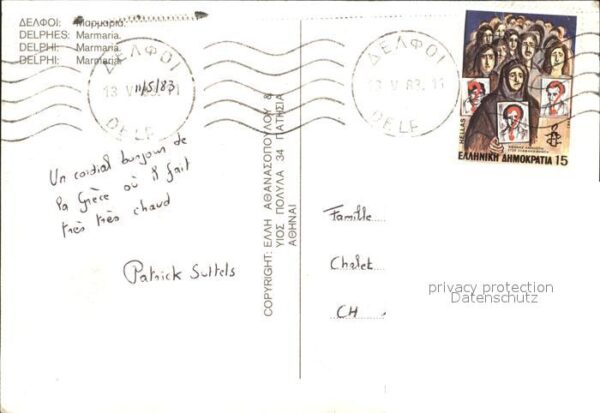 ΔΕΛΦΟΙ: Μαρμαριά.
DELPHES: Marmaria.
DELPHI: Marmaria.
DELPHI: Marmaria.
ΔΕΛΦΟΙ
13 V 83. 11
DELF
11/5/83
Un cordial bonjour de
la Grèce où il fait
très très chaud
Patrick Suttels
COPYRIGHT: ΕΛΛΗ ΑΘΑΝΑΣΟΠΟΥΛΟΥ &
ΥΙΟΣ ΠΟΛΥΛΑ 34 ΠΑΤΗΣΙΑ
ΑΘΗΝΑΙ
ΔΕΛΦΟΙ
13 V 83. 11
DELF
HELLAS
ΕΛΛΗΝΙΚΗ ΔΗΜΟΚΡΑΤΙΑ 15
Famille
Chalet
CH
privacy protection
Datenschutz